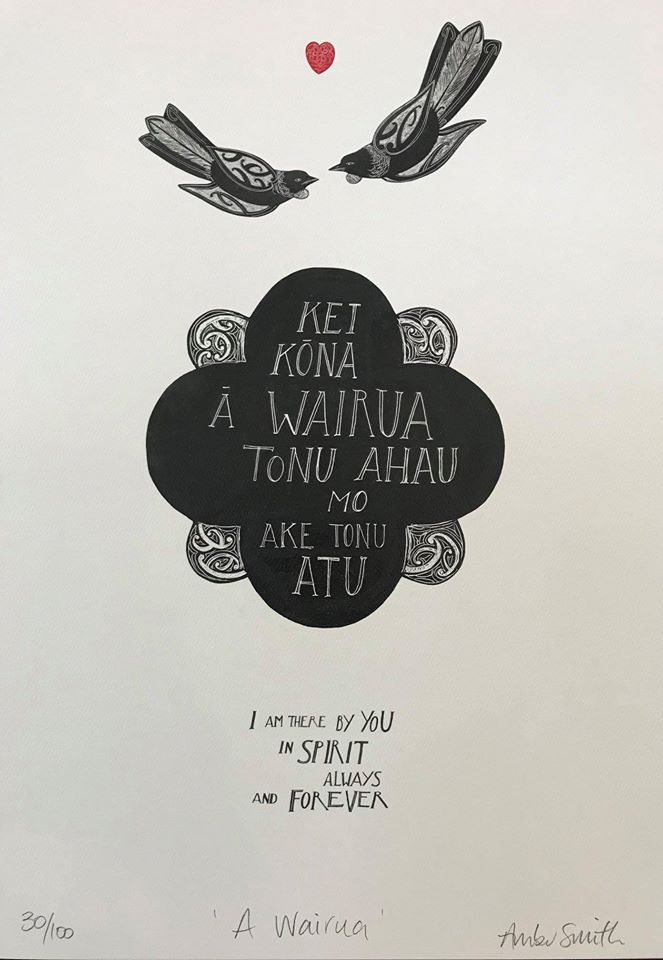 KEI
KŌNA
Ā WAIRUA
TONU AHAU
MO
AKE TONU
ATU
I AM THERE BY YOU
IN SPIRIT
ALWAYS
AND FOREVER
30/100
'A Wairua'
Amber Smith